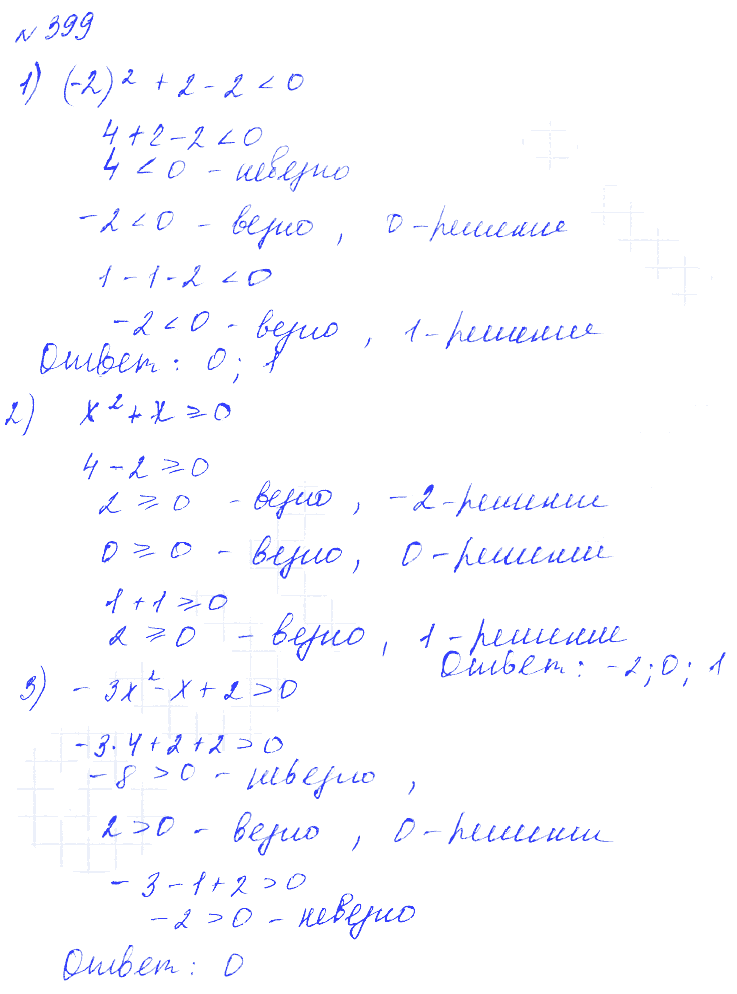 № 399
1) (-2)² + 2 - 2 < 0
4 + 2 - 2 < 0
4 < 0 - неверно
-2 < 0 - верно, 0 - решение
1 - 1 - 2 < 0
-2 < 0 - верно, 1 - решение
Ответ: 0; 1
2) x² + x ⩾ 0
4 - 2 ⩾ 0
2 ⩾ 0 - верно, -2 - решение
0 ⩾ 0 - верно, 0 - решение
1 + 1 ⩾ 0
2 ⩾ 0 - верно, 1 - решение
Ответ: -2; 0; 1
3) -3x² - x + 2 > 0
-3·4 + 2 + 2 > 0
-8 > 0 - неверно,
2 > 0 - верно, 0 - решение
-3 - 1 + 2 > 0
-2 > 0 - неверно
Ответ: 0